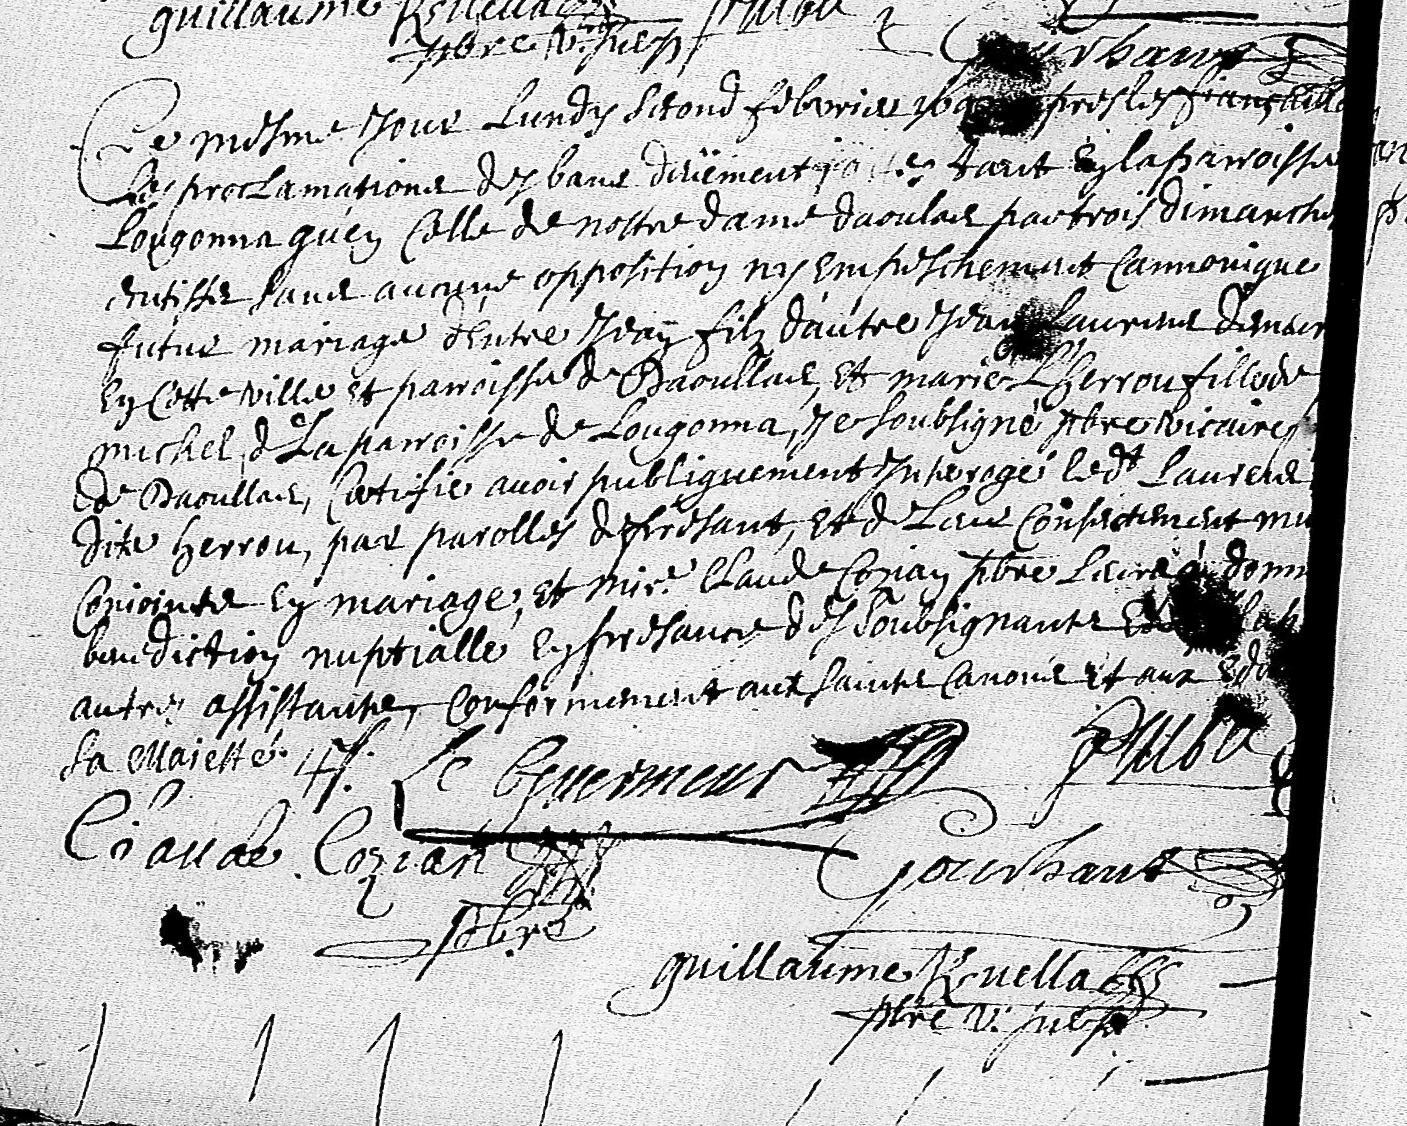 guillaume Kvella
pbre V. sub
Gourhant
Ce mesme jour Lundy second febvrier apres les fiançailles
Les proclamations des bans düement faittes tant en la parroisse
Lougonna qu'en Celle de nostre dame daoulas par trois dimanches
sans aucune opposition ny Empeschement Cannonique
futur mariage d'entre Jean fils d'autre Jean Laurens demeur
En Cette ville et parroisse de Daoullas, et marie L'Herrou fille de
michel, de La parroisse de Lougonna, je soubsigné pbre vicaire
de Daoullas, Certifie avoir publiquement Interogé ledt Laurens
dite Herrou, par parolles de presant, et de Leur Consentement mu
Conjoints En mariage, et mire Claude Cozian pbre Leur a donn
benediction nuptialle En presance des soubsignants
autres assistants, Conformement aux saints Canons et aux Edi
sa Majesté
Le Guermeur
Claude Cozian
pbre
Gourhant
guillaume Kvella
pbre V. sub